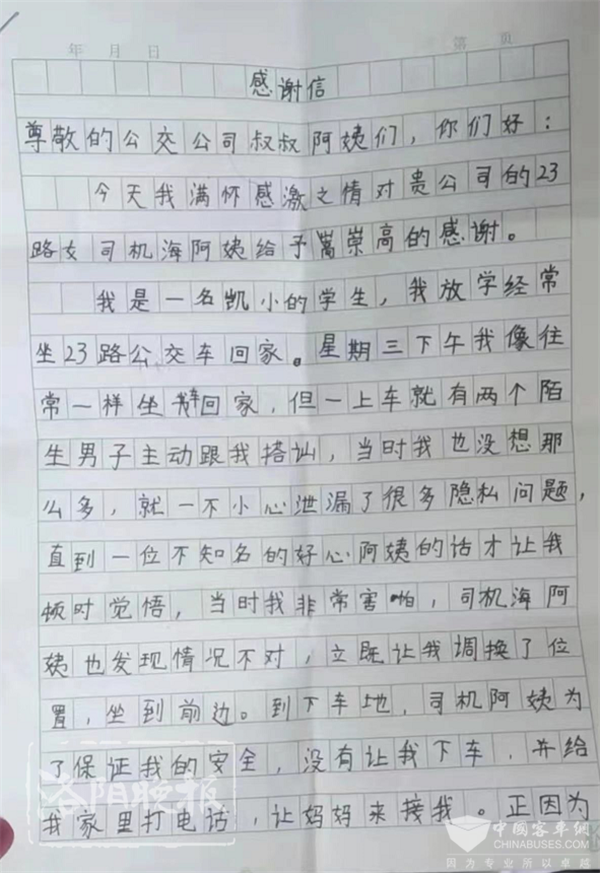 年 月 日 第 页
感谢信
尊敬的公交公司叔叔阿姨们，你们好：
今天我满怀感激之情对贵公司的23
路女司机海阿姨给予崇高的感谢。
我是一名凯小的学生，我放学经常
坐23路公交车回家。星期三下午我像往
常一样坐车回家，但一上车就有两个陌
生男子主动跟我搭讪，当时我也没想那
么多，就一不小心泄漏了很多隐私问题，
直到一位不知名的好心阿姨的话才让我
顿时觉悟，当时我非常害怕，司机海阿
姨也发现情况不对，立既让我调换了位
置，坐到前边。到下车地，司机阿姨为
了保证我的安全，没有让我下车，并给
我家里打电话，让妈妈来接我。正因为
洛阳晚报
中国客车网
CHINABUSES.COM
因为专业所以卓越